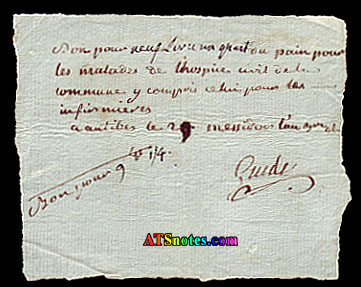 Bon pour neuf Livre un quart du pain pour
les malades de lhospice civil de la
commune y compris celui pour les
infirmieres
a antibes le 29 messidor l'an
Bon pour 9 tt 1/4
ATSnotes.com